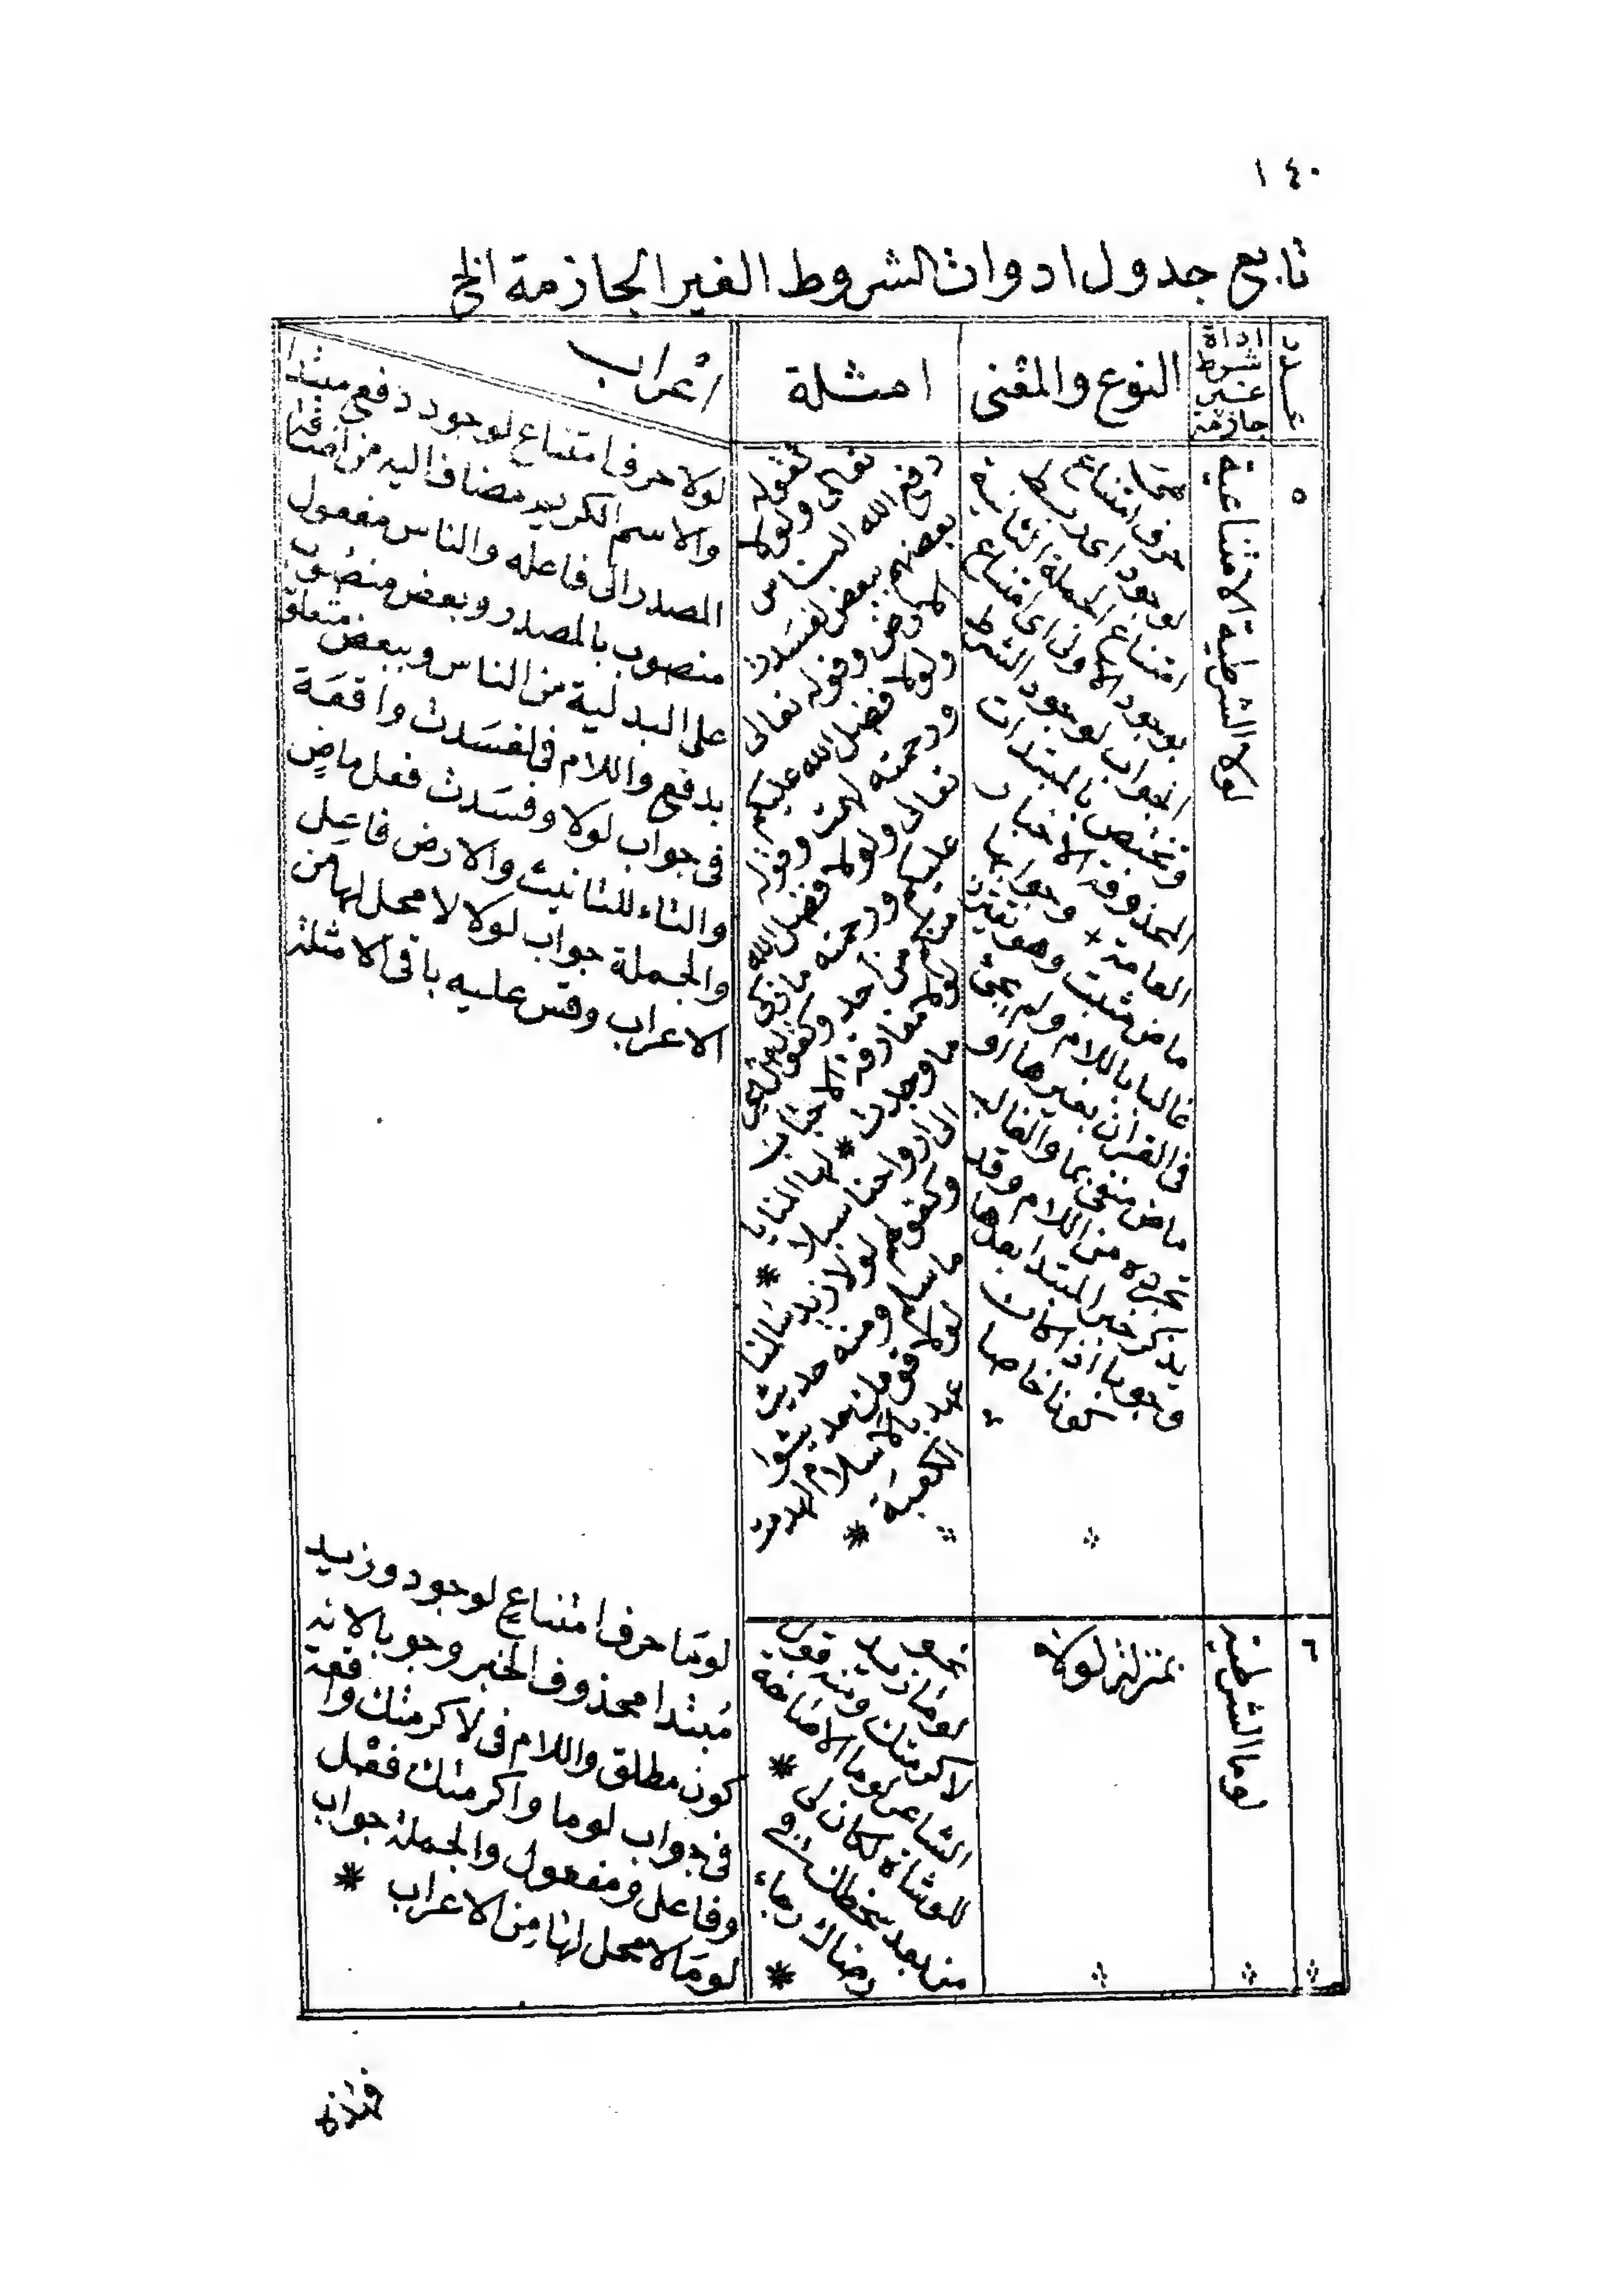 ١٤٠
تابع جدول ادوات الشروط الغير الجازمة الخ
عدد
اداة
شرط
غير
جازمة
النوع والمعنى
امثلة
اعراب
٥
لولا الشرطية الامتناعية
حرف امتناع
لوجود اى يربط
امتناع الجملة الثانية
بوجود الاولى اى امتناع
الجواب لوجود الشرط
وتختص بالمبتدات
المحذوفة الاخبار
العامة وجوابها
ماض مثبت وهو يقترن
غالبا باللام ولم يجئ
فى القران بغيرها او
ماض منفى بما والغالب
تجرده من اللام وقد
يذكر خبر المبتدا بعدها
وجوبا اذا كان
كونا خاصا
كقوله
تعالى ولولا
دفع الله الناس
بعضهم ببعض لفسدت
الارض وقوله تعالى
ولولا فضل الله عليكم
ورحمته لهمت وقوله
تعالى ولولا فضل الله
عليكم ورحمته ما زكى
منكم من احد وكقول
لولا مفارقة الاحباب
ما وجدت * لها المنايا
الى ارواحنا سبلا *
وكقولهم لولا زيد سالمنا
ما سلم ومنه حديث
لولا قومك حديثوا
عهد بالاسلام لهدمت
الكعبة *
لولا حرف امتناع لوجود دفع مبتدا
والاسم الكريم مضاف اليه من اضافة
المصدر الى فاعله والناس مفعول
منصوب بالمصدر وبعض منصوب
على البدلية من الناس وببعض متعلق
بدفع واللام فى لفسَدت واقعَة
فى جواب لولا وفسَدت فعل ماضٍ
والتاء للتانيث والارض فاعِل
والجملة جواب لولا لا محل لها من
الاعراب وقس عليه باقى الامثلة
٦
لوما الشرطية
بمنزلة لولا
نحو
لوما زيد
لاكرمتك ومنه قول
الشاعر لوما الاصَاخة
للوشاة لكان لى *
من بعد سخطك فى
رضاك رجاء *
لومَا حرف امتناع لوجود وزيد
مُبتدا محذوف الخبر وجوبا لانه
كون مطلق واللام فى لاكرمتك واقعة
فى جواب لوما واكرمتك فعْل
وفاعل ومفعول والجملة جواب
لومَا لا محل لها مِن الاعراب *